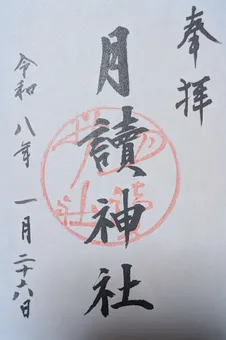 奉拝
月讀神社
令和八年 一月二十六日